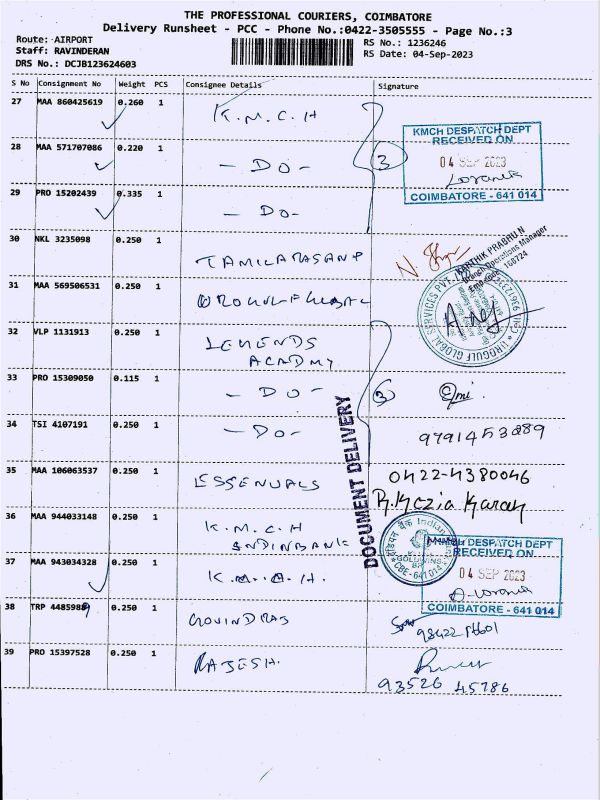 THE PROFESSIONAL COURIERS, COIMBATORE
Delivery Runsheet - PCC - Phone No.:0422-3505555 - Page No.:3
Route: AIRPORT
RS No.: 1236246
Staff: RAVINDERAN
RS Date: 04-Sep-2023
DRS No.: DCJB123624603
S No Consignment No Weight PCS Consignee Details Signature
27 MAA 860425619 0.260 1 K.M.C.H
KMCH DESPATCH DEPT
RECEIVED ON
04 SEP 2023
COIMBATORE - 641 014
28 MAA 571707086 0.220 1 - DO - 3
29 PRO 15202439 0.335 1 - DO -
30 NKL 3235098 0.250 1
KARTHIK PRABHU N
Branch Operations Manager
31 MAA 569506531 0.250 1
UROGULF GLOBAL SERVICES PVT. LTD.
32 VLP 1131913 0.250 1 LEGENDS
ACADMY
33 PRO 15309050 0.115 1 - DO - 3
34 TSI 4107191 0.250 1 - DO - 9791453289
DOCUMENT DELIVERY
35 MAA 106063537 0.250 1 0422-4380046
R. Kezia
36 MAA 944033148 0.250 1 K.M.C.H
INDINBANK
इंडियन बैंक Indian
GOLDWINS
CBE - 641 014
KMCH DESPATCH DEPT
RECEIVED ON
04 SEP 2023
COIMBATORE - 641 014
37 MAA 943034328 0.250 1 K.M.C.H.
38 TRP 4485989 0.250 1 GOVINDRAJ
39 PRO 15397528 0.250 1 RAJESH.
93526 45786